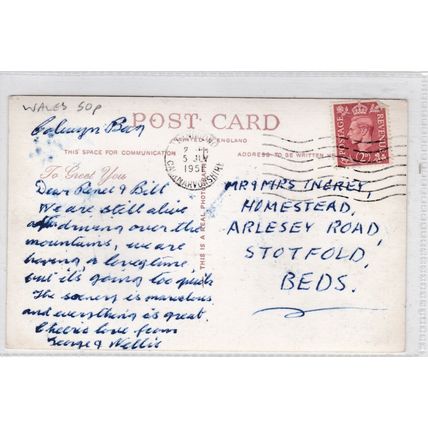 WALES 50p
Colwyn Bay
POST CARD
PRINTED IN ENGLAND
THIS SPACE FOR COMMUNICATION
ADDRESS TO BE WRITTEN
5 JLY
1951
CAERNARVONSHIRE
POSTAGE
REVENUE
2D
THIS IS A REAL PHOTOGRAPH
To Greet You
Dear Renee & Bill
We are still alive
after driving over the
mountains, we are
having a lovely time,
but it's going too quick
The scenery is marvelous
and everything is great.
Cheerio love from
George & Nellie
MR & MRS INGREY,
HOMESTEAD,
ARLESEY ROAD,
STOTFOLD,
BEDS.